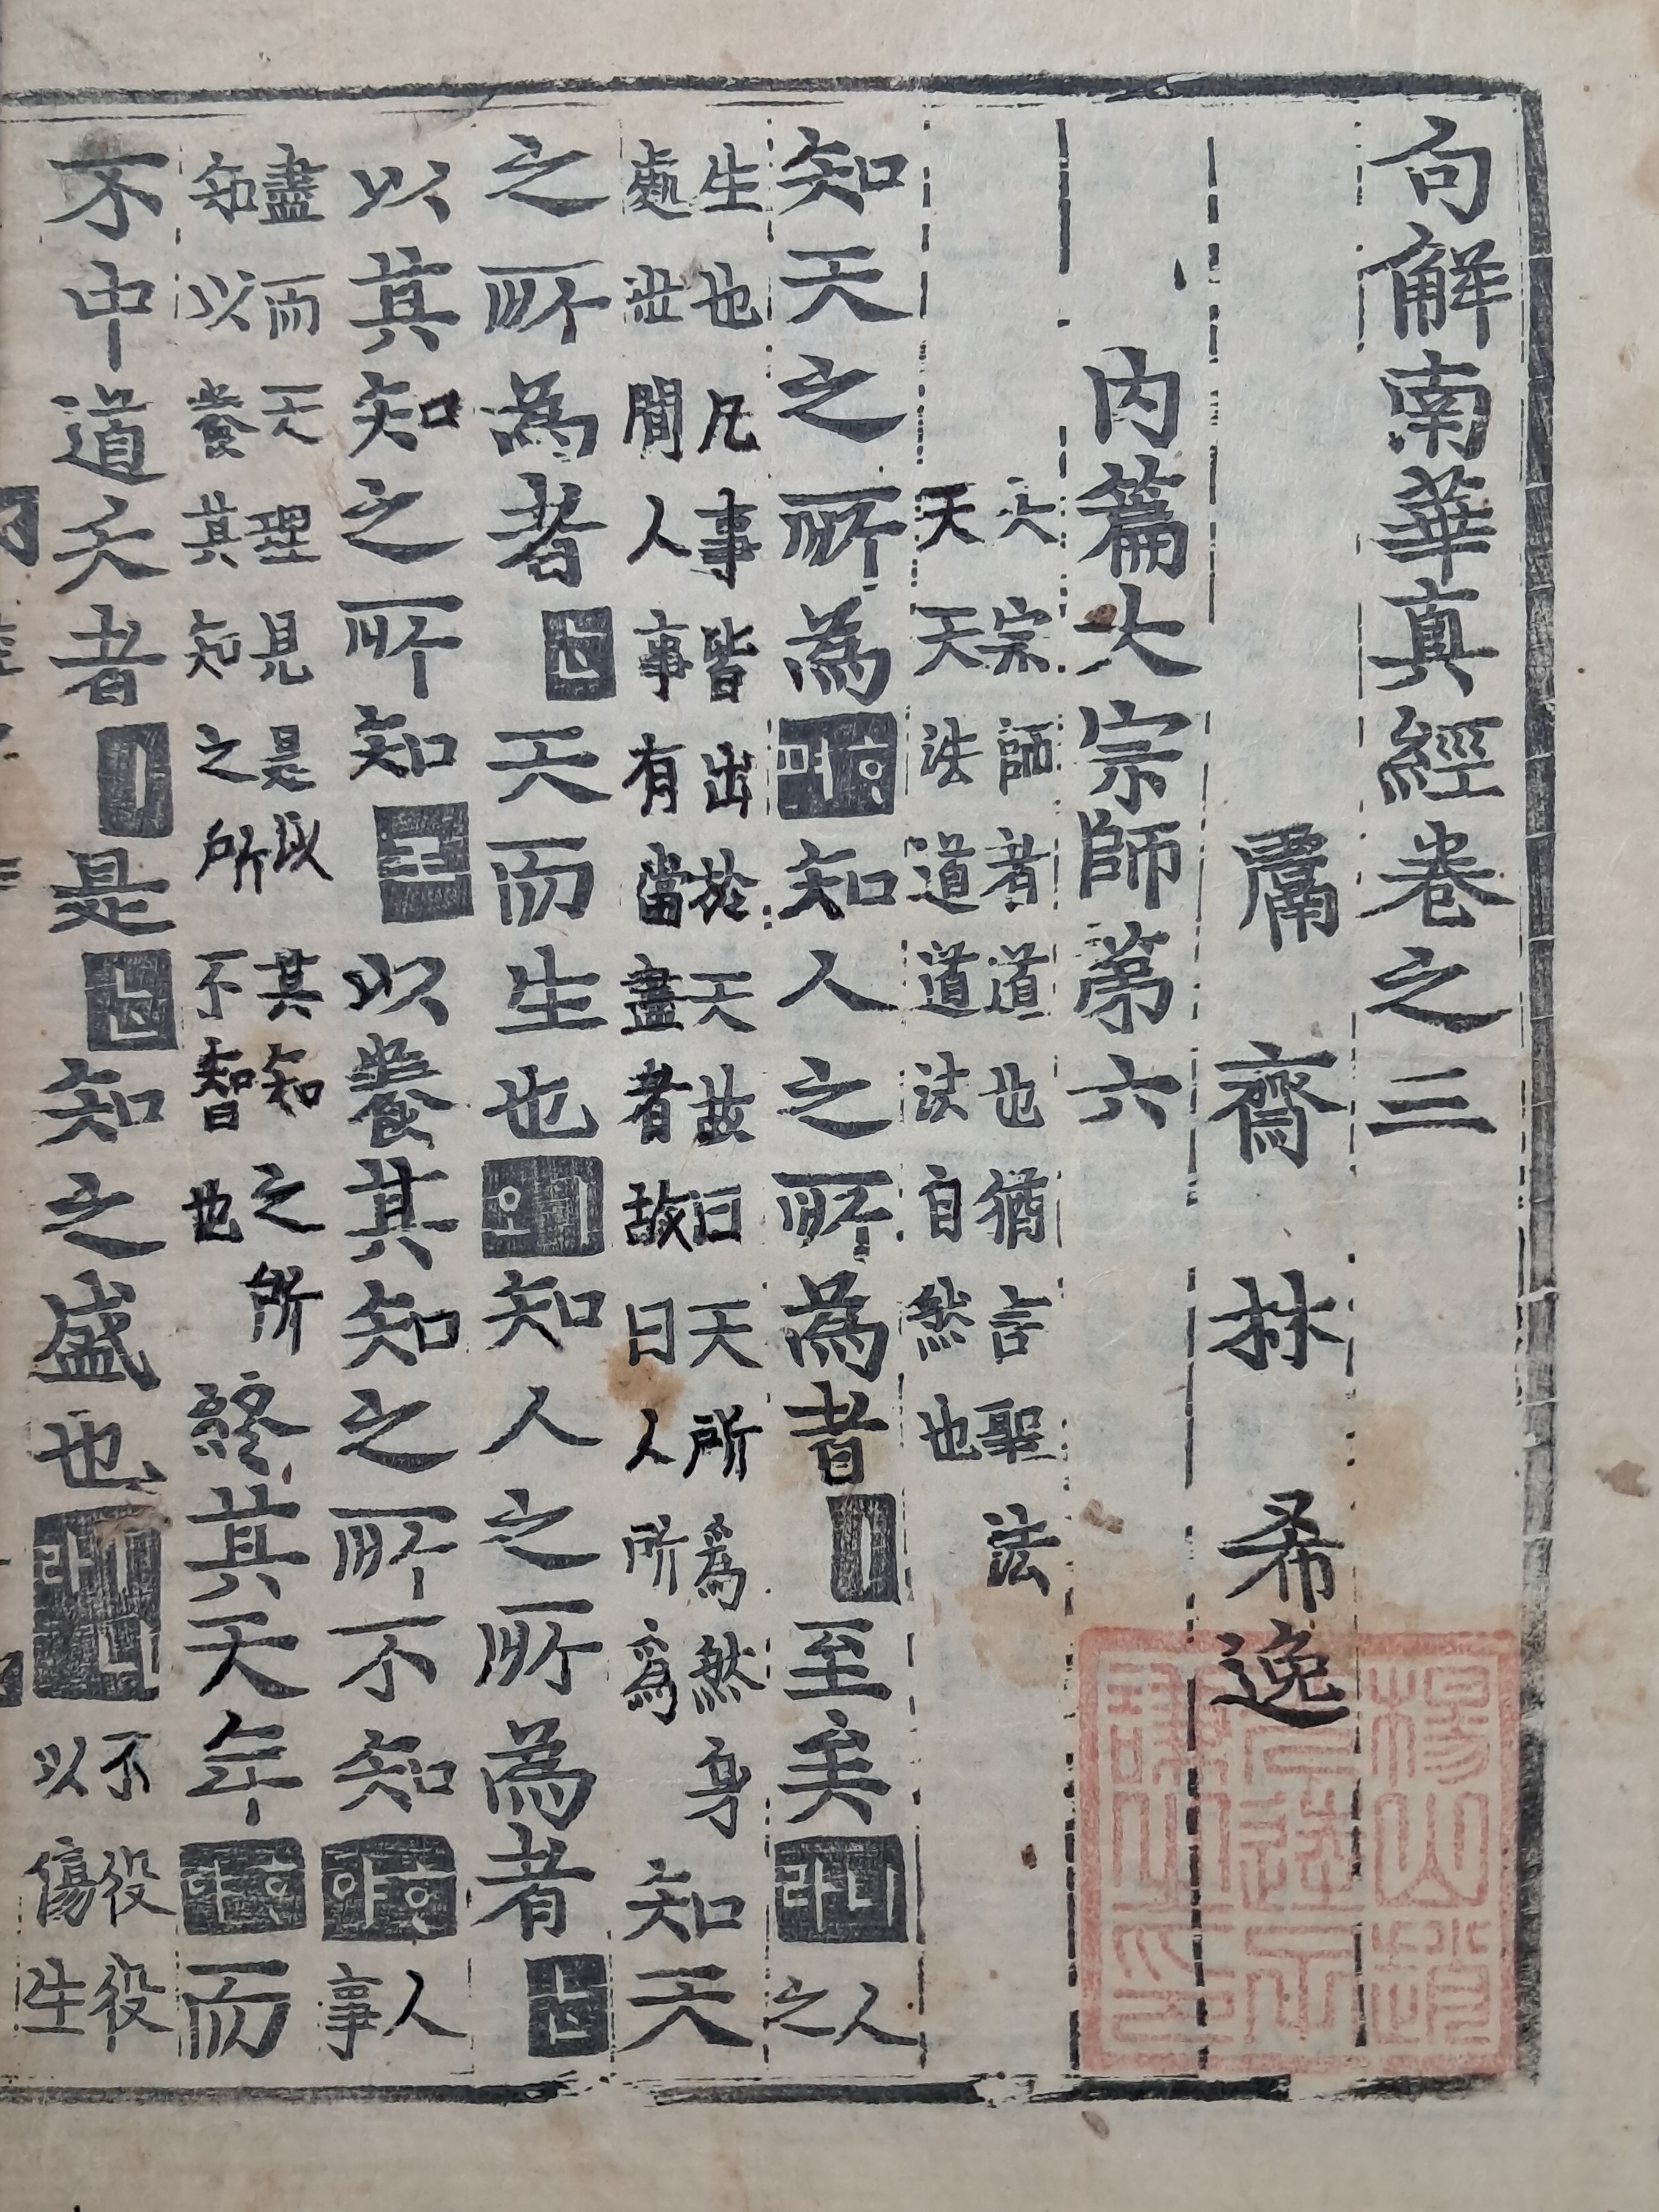 句解南華真經卷之三
鬳齋林希逸
內篇大宗師第六
大宗師者道也猶言聖法
天天法道道法自然也
知天之所為知人之所為者至矣人
之
生也凡事皆出於天故曰天所爲然身
處世間人事有當盡者故曰人所爲
知天
之所為者天而生也知人之所為者
以其知之所知以養其知之所不知人
事
盡而天理見是以其知之所
知以養其知之所不智也
終其天年而
不中道夭者是知之盛也不役役
以傷生